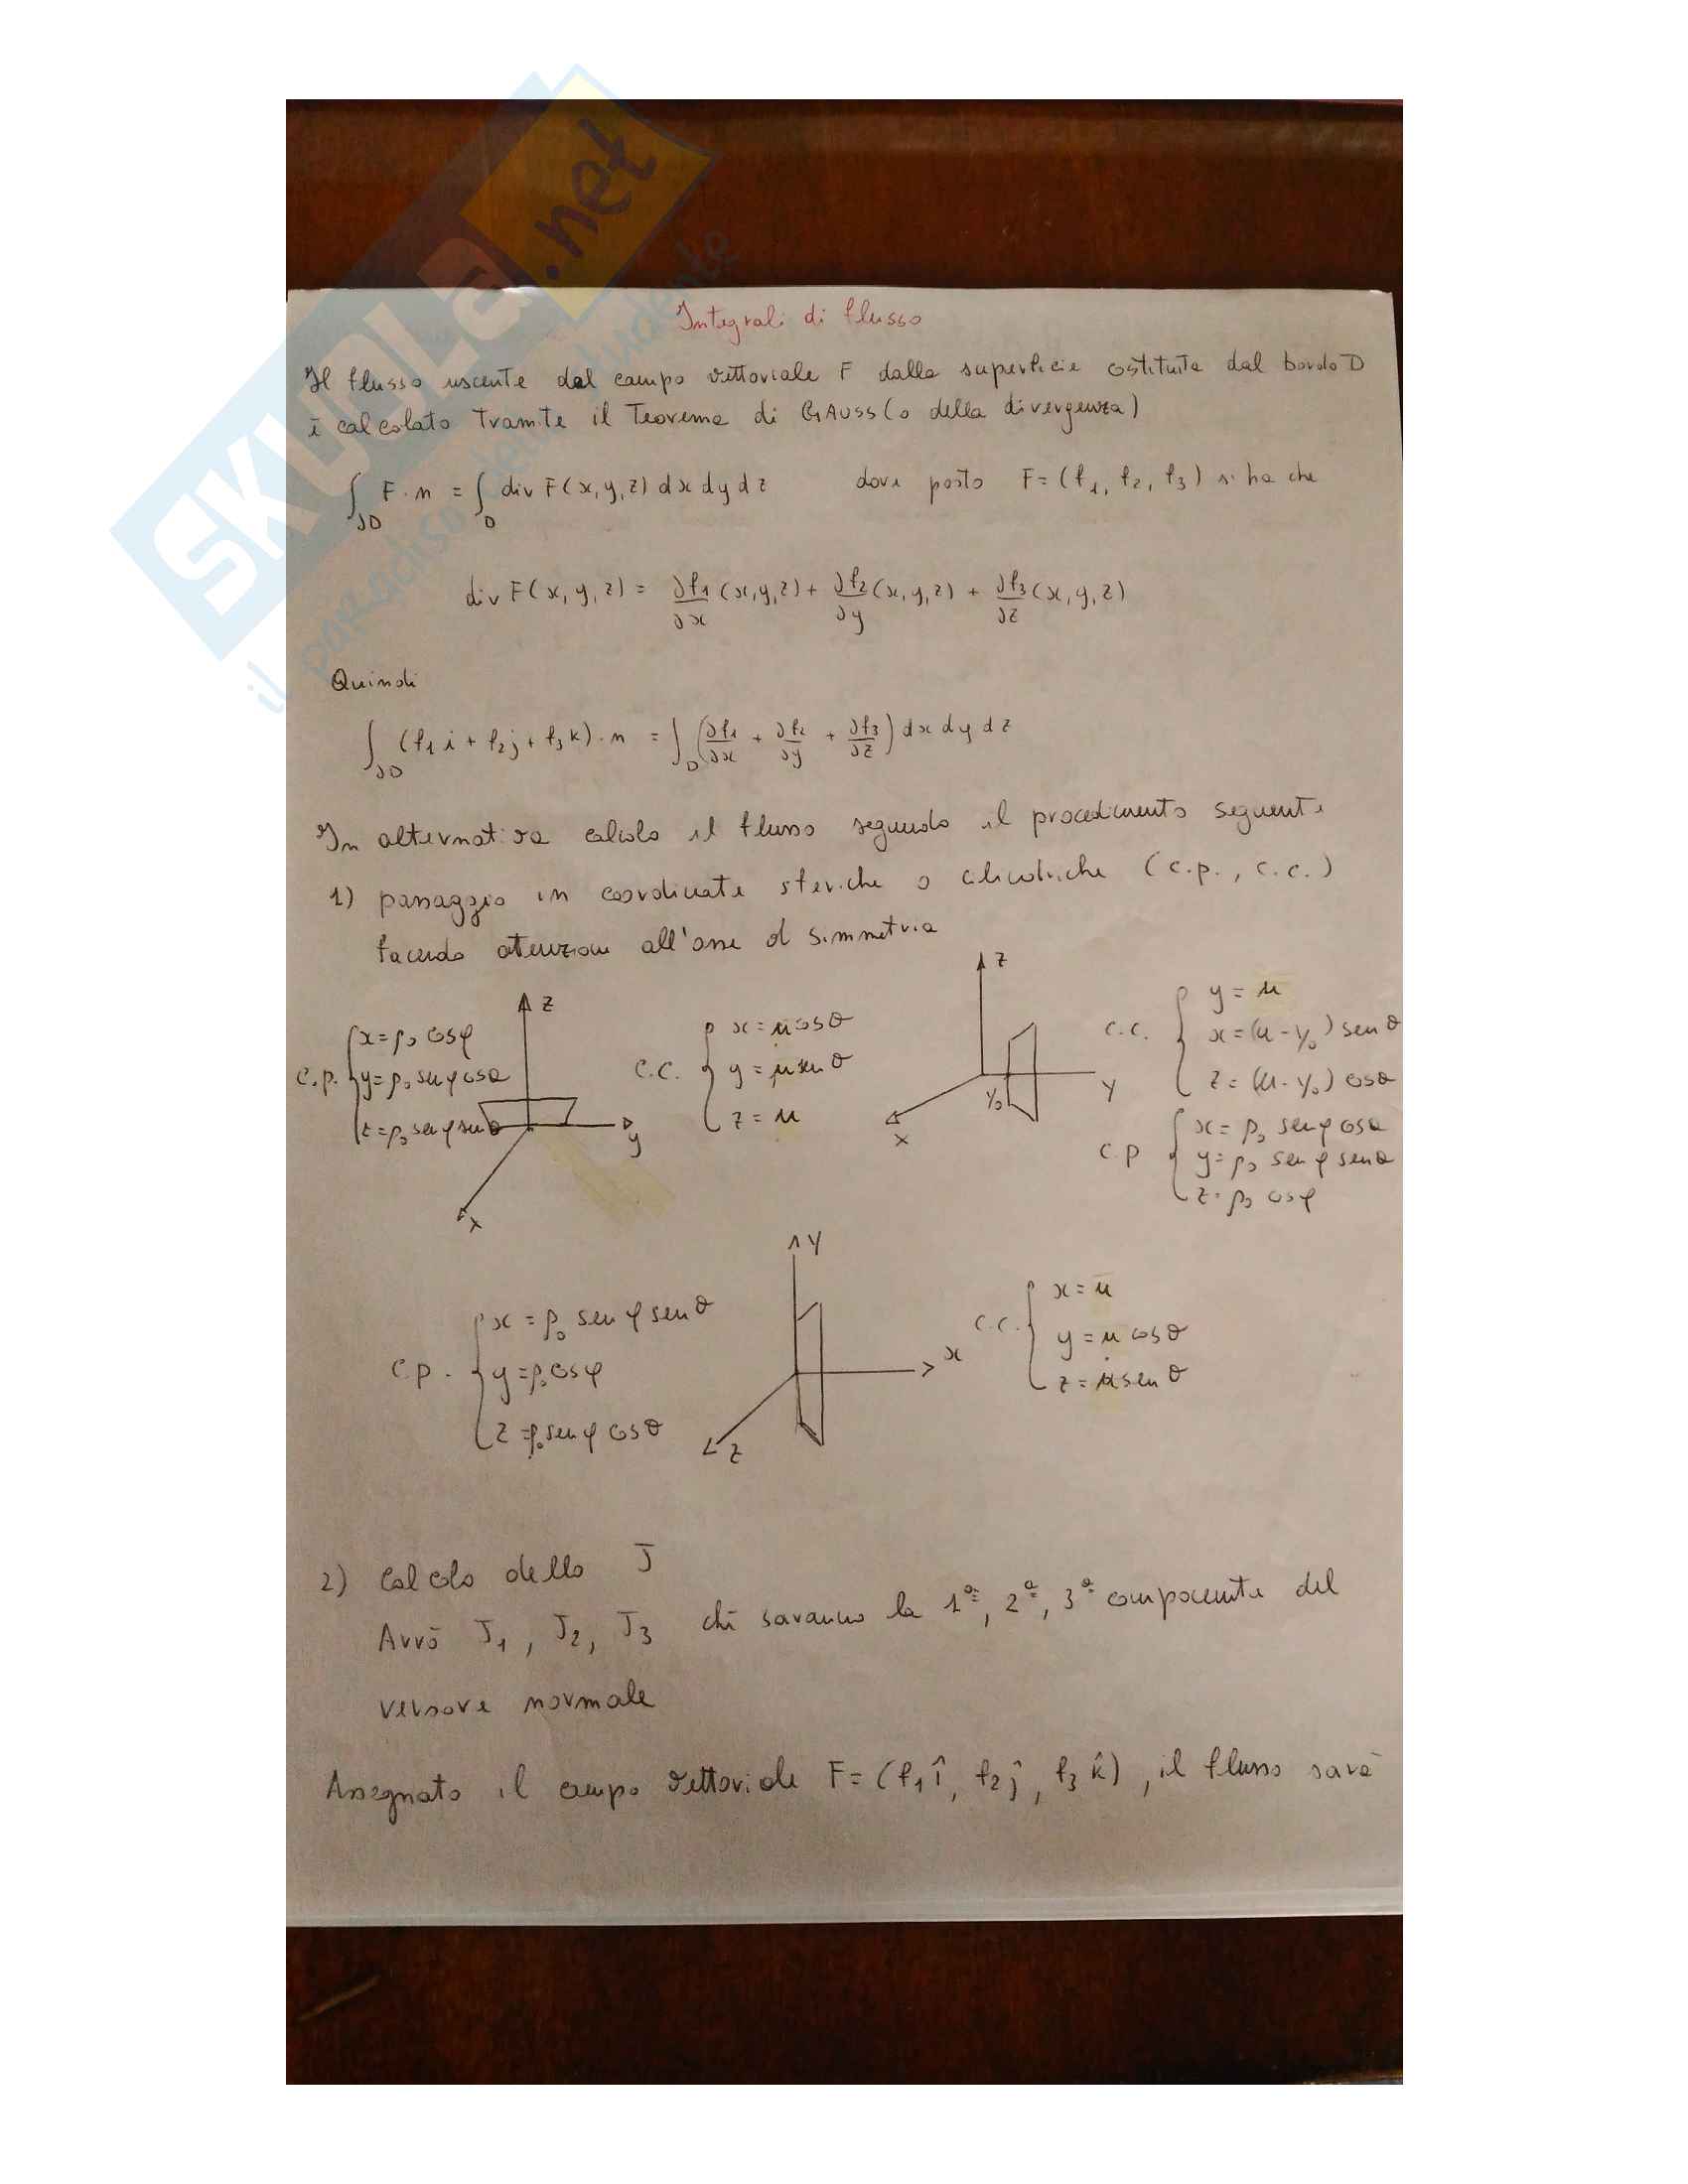 SKUOLA.net
il paradiso dello studente
Integrali di flusso
Il flusso uscente dal campo vettoriale F dalla superficie ostituita dal bordo D
è calcolato tramite il Teorema di GAUSS (o della divergenza)
∫∂D F · n = ∫D div F(x, y, z) dx dy dz dove posto F = (f1, f2, f3) si ha che
div F(x, y, z) = ∂f1/∂x (x, y, z) + ∂f2/∂y (x, y, z) + ∂f3/∂z (x, y, z)
Quindi
∫∂D (f1 i + f2 j + f3 k) · n = ∫D (∂f1/∂x + ∂f2/∂y + ∂f3/∂z) dx dy dz
In alternativa calcolo il flusso seguendo il procedimento seguente
1) passaggio in coordinate sferiche o cilindriche (c.p., c.c.)
facendo attenzione all'asse di simmetria
c.p. { x = ρ0 cosφ
y = ρ0 senφ cosθ
z = ρ0 senφ senθ
z
y
x
c.c. { x = u cosθ
y = u senθ
z = u
z
y
x
y0
c.c. { y = u
x = (u - y0) senθ
z = (u - y0) cosθ
c.p { x = ρ0 senφ cosθ
y = ρ0 senφ senθ
z = ρ0 cosφ
c.p. { x = ρ0 senφ senθ
y = ρ0 cosφ
z = ρ0 senφ cosθ
y
x
z
c.c. { x = u
y = u cosθ
z = u senθ
2) Calcolo dello J
Avrò J1, J2, J3 che saranno la 1ª, 2ª, 3ª componente del
versore normale
Assegnato il campo vettoriale F = (f1 î, f2 ĵ, f3 k̂), il flusso sarà